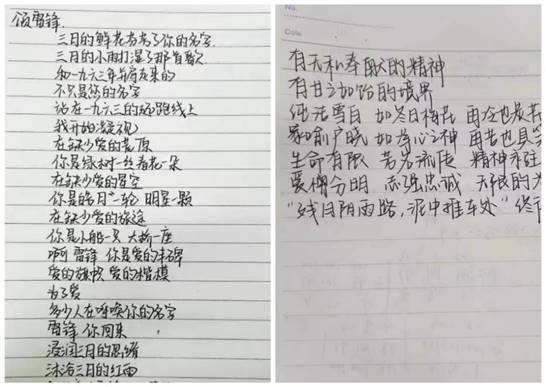 颂雷锋
三月的鲜花夯弯了你的名字
三月的小雨打湿了那首歌
和一九六三年前在来的
不只是您的名字
站在一九六三的起跑线上
我开始凝视
在缺少爱的荒原
你是绿树一丝春花一朵
在缺少爱的星空
你是皓月一轮 明星一颗
在缺少爱的旅途
你是小船一只 大桥一座
啊 雷锋 你是爱的丰碑
爱的旗帜 爱的楷模
为了爱
多少人在呼唤你的名字
雷锋 你回来
浸润三月的思绪
沐浴三月的红雨
No.
Date
有无私奉献的精神
有甘之如饴的境界
纯洁雪白 如冬日梅花 再冷也是
家喻户晓 如当心之神 再苦也具
生命有限 若光渐度 精神永驻
爱憎分明 志强忠诚 无限的
“残月阴雨路，泥中推车处”